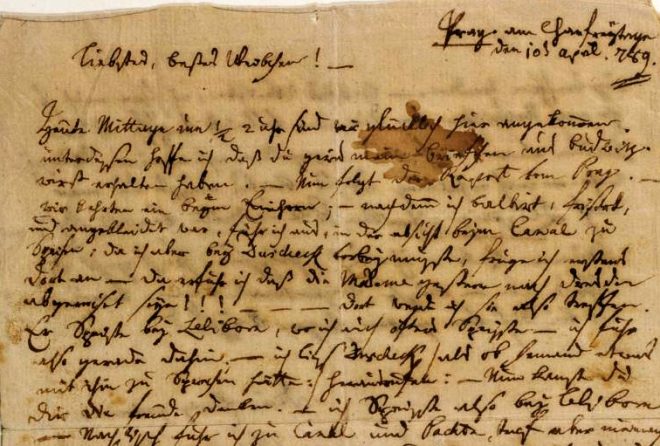 Prag. am Charfreytage
den 10:t April. 789.
Liebstes, bestes Weibchen! —
Heute Mittage um 1/2 2 uhr sind wir glücklich hier angekommen.
unterdessen hoffe ich daß du gewis mein briefchen aus budwitz
wirst erhalten haben. — Nun folgt der Raport vom Prag. —
wir kehrten ein beym Einhorn; — nachdem ich balbirt, frisirt,
und angekleidet war, fuhr ich aus, in der absicht beim Canal zu
Speisen; da ich aber bey Duscheck vorbey musste, frug ich erstens
dort an — da erfuhr ich daß die Madame gestern nach dresden
abgereiset seye!!! — — — — dort werde ich sie also treffen.
Er Speiste bey Leliborn, wo ich auch öfters Speiste — ich fuhr
also gerade dahin. — ich lies Duscheck (als ob Jemand etwas
mit ihm zu Sprechen hätte) herausrufen: — Nun kannst du
dir die freude denken. — ich Speiste also bey Leliborn
— Nach Tisch fuhr ich zu Canal und Pachta, traf aber